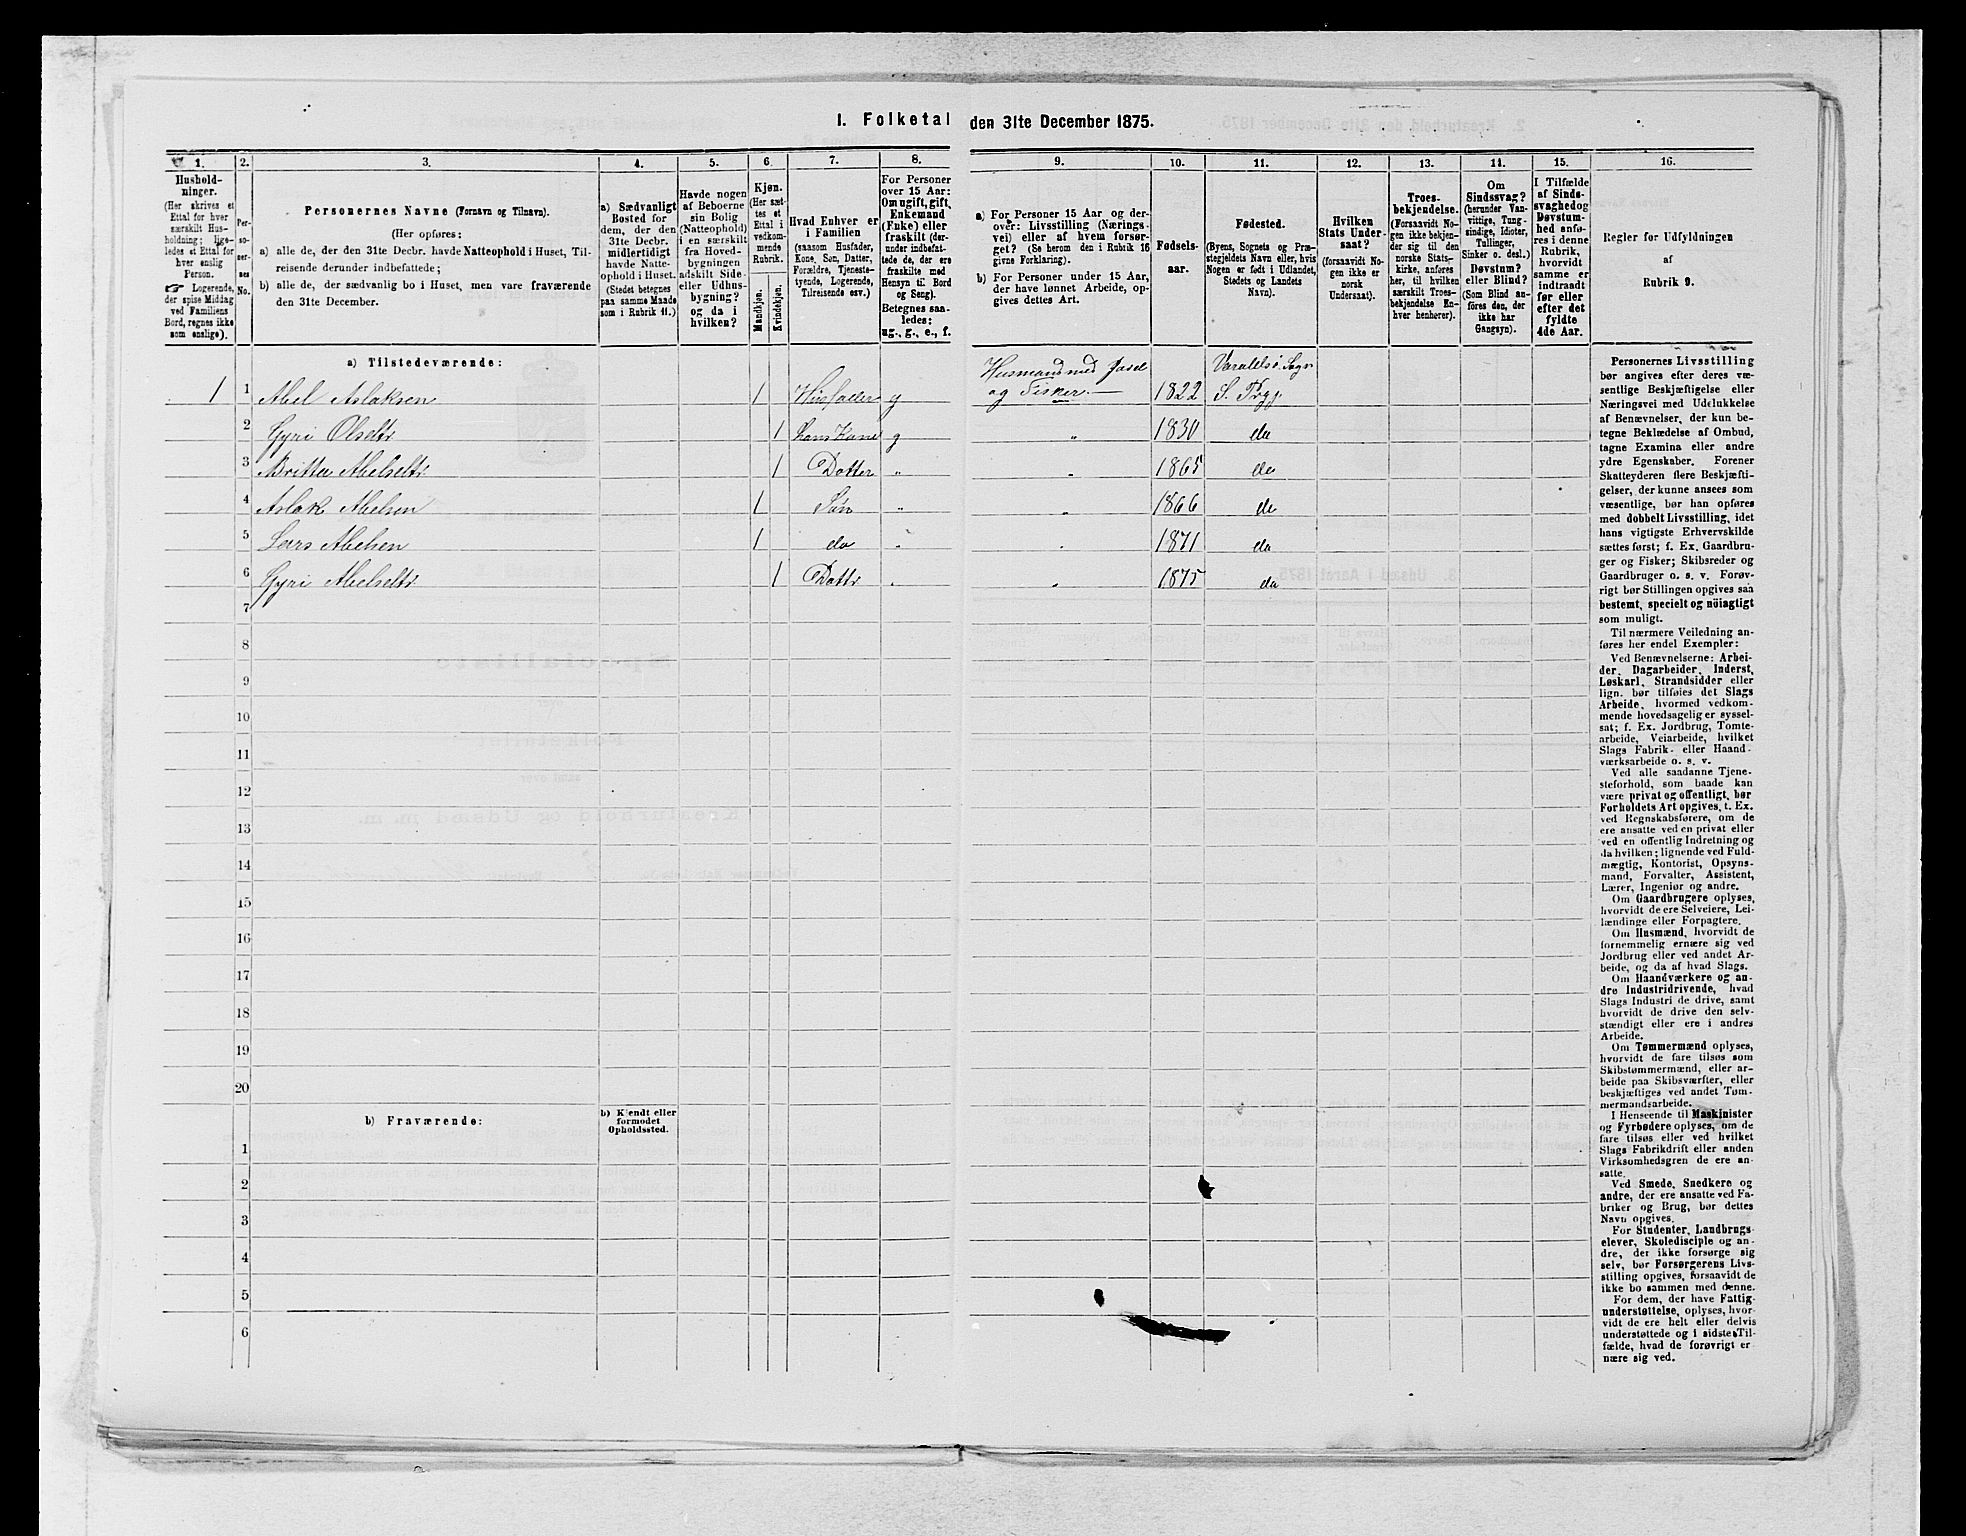 I. Folketal den 31te December 1875.
1. 2. 3. 4. 5. 6. 7. 8. 9. 10. 11. 12. 13. 14. 15. 16.
Hushold-
ninger.
(Her skrives et
Ettal for hver
særskilt Hus-
holdning; lige-
ledes et Ettal for
hver enslig
Person.
☞ Logerende,
der spise Middag
ved Familiens
Bord, regnes ikke
som enslige).
Per-
so-
ner-
nes
No.
Personernes Navne (Fornavn og Tilnavn).
(Her opføres:
a) alle de, der den 31te Decbr. havde Natteophold i Huset, Til-
reisende derunder indbefattede;
b) alle de, der sædvanlig bo i Huset, men vare fraværende
den 31te December.
a) Sædvanligt
Bosted for
dem, der den
31te Decbr.
midlertidigt
havde Natte-
ophold i Huset.
(Stedet betegnes
paa samme Maade
som i Rubrik 11.)
Havde nogen
af Beboerne
sin Bolig
(Natteophold)
i en særskilt
fra Hoved-
bygningen
adskilt Side-
eller Udhus-
bygning?
og da i
hvilken?
Kjøn.
(Her sæt-
tes et
Ettal i
vedkom-
mende
Rubrik.
Mandkjøn.
Kvindekjøn.
Hvad Enhver er
i Familien
(saasom Husfader,
Kone, Søn, Datter,
Forældre, Tjeneste-
tyende, Logerende,
Tilreisende osv.)
For Personer
over 15 Aar:
Om ugift, gift,
Enkemand
(Enke) eller
fraskilt (der-
under indbefat-
tede de, der ere
fraskilte med
Hensyn til Bord
og Seng).
Betegnes saa-
ledes:
ug., g., e., f.
a) For Personer 15 Aar og der-
over: Livsstilling (Nærings-
vei) eller af hvem forsør-
get? (Se herom den i Rubrik 16
givne Forklaring).
b) For Personer under 15 Aar,
der have lønnet Arbeide, op-
gives dettes Art.
Fødsels-
aar.
Fødested.
(Byens, Sognets og Præ-
stegjeldets Navn eller, hvis
Nogen er født i Udlandet,
Stedets og Landets
Navn).
Hvilken
Stats Under-
saat?
(forsaavidt No-
gen ikke er
norsk
Undersaat).
Troes-
bekjendelse.
(Forsaavidt No-
gen ikke bekjen-
der sig til den
norske Stats-
kirke, anføres
her, til hvilken
særskilt Troes-
bekjendelse En-
hver henhører).
Om
Sindssvag?
(herunder Van-
vittige, Tung-
sindige, Idioter,
Tullinger,
Sinker o. desl.)
Døvstum?
eller Blind?
(Som Blind an-
føres den, der
ikke har
Gangsyn).
I Tilfælde
af Sinds-
svaghed og
Døvstum-
hed anfø-
res i denne
Rubrik,
hvorvidt
samme er
indtraadt
før eller
efter det
fyldte
4de Aar.
Regler for Udfyldningen
af
Rubrik 9.
a) Tilstedeværende:
Husmand med Jord Varaldsö Sogn
1 1 Abel Aslaksen 1 Husfader g og Fisker.— 1822 S. Prgj.
2 Gyri Olsdtr 1 hans Kone g „ 1830 do
3 Britta Abelsdtr 1 Datter „ „ 1865 do
4 Aslak Abelsen 1 Sön „ „ 1866 do
5 Lars Abelsen 1 do „ „ 1871 do
6 Gyri Abelsdtr 1 Dattr „ „ 1875 do
7
8
9
10
11
12
13
14
15
16
17
18
19
20
b) Fraværende:
b) Kjendt eller
formodet
Opholdssted.
1
2
3
4
5
6
Personernes Livsstilling
bør angives efter deres væ-
sentlige Beskjæftigelse eller
Næringsvei med Udelukkelse
af Benævnelser, der kun be-
tegne Beklædelse af Ombud,
tagne Examina eller andre
ydre Egenskaber. Forener
Skatteyderen flere Beskjæfti-
gelser, der kunne ansees som
væsentlige, bør han opføres
med dobbelt Livsstilling, idet
hans vigtigste Erhvervskilde
sættes først; f. Ex. Gaardbru-
ger og Fisker; Skibsreder og
Gaardbruger o. s. v. Forøv-
rigt bør Stillingen opgives saa
bestemt, specielt og nöiagtigt
som muligt.
Til nærmere Veiledning an-
føres her endel Exempler:
Ved Benævnelserne: Arbei-
der, Dagarbeider, Inderst,
Løskarl, Strandsidder eller
lign. bør tilføies det Slags
Arbeide, hvormed vedkom-
mende hovedsagelig er syssel-
sat; f. Ex. Jordbrug, Tomte-
arbeide, Veiarbeide, hvilket
Slags Fabrik- eller Haand-
værksarbeide o. s. v.
Ved alle saadanne Tjene-
steforhold, som baade kan
være privat og offentligt, bør
Forholdets Art opgives, t. Ex.
ved Regnskabsførere, om de
ere ansatte ved en privat eller
ved en offentlig Indretning og
da hvilken; lignende ved Fuld-
mægtig, Kontorist, Opsyns-
mand, Forvalter, Assistent,
Lærer, Ingeniør og andre.
Om Gaardbrugere oplyses,
hvorvidt de ere Selveiere, Lei-
lændinge eller Forpagtere.
Om Husmænd, hvorvidt de
fornemmelig ernære sig ved
Jordbrug eller ved andet Ar-
beide, og da af hvad Slags.
Om Haandværkere og an-
dre Industridrivende, hvad
Slags Industri de drive, samt
hvorvidt de drive den selv-
stændigt eller ere i andres
Arbeide.
Om Tømmermænd oplyses,
hvorvidt de fare tilsøs som
Skibstømmermænd, eller ar-
beide paa Skibsværfter, eller
beskjæftiges ved andet Tøm-
mermandsarbeide.
I Henseende til Maskinister
og Fyrbødere oplyses, om de
fare tilsøs eller ved hvilket
Slags Fabrikdrift eller anden
Virksomhedsgren de ere an-
satte.
Ved Smede, Snedkere og
andre, der ere ansatte ved Fa-
briker og Brug, bør dettes
Navn opgives.
For Studenter, Landbrugs-
elever, Skoledisciple og an-
dre, der ikke forsørge sig
selv, bør Forsørgerens Livs-
stilling opgives, forsaavidt de
ikke bo sammen med denne.
For dem, der have Fattig-
understøttelse, oplyses, hvor-
vidt de ere helt eller delvis
understøttede og i sidste Til-
fælde, hvad de forøvrigt er-
nære sig ved.